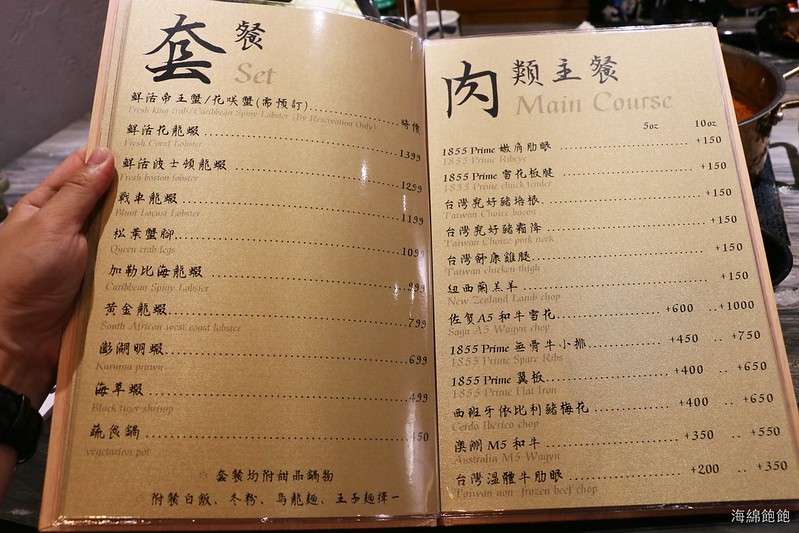 套餐
Set
鮮活帝王蟹/花咲蟹(需預訂) 時價
Fresh king crab/Caribbean Spiny Lobster (By Reservation Only)
鮮活花龍蝦 1399
Fresh Coral Lobster
鮮活波士頓龍蝦 1299
Fresh boston lobster
戰車龍蝦 1199
Blunt Locust Lobster
松葉蟹腳 1099
Queen crab legs
加勒比海龍蝦 999
Caribbean Spiny Lobster
黃金龍蝦 799
South African west coast lobster
澎湖明蝦 699
Kuruma prawn
海草蝦 499
Black tiger shrimp
蔬食鍋 450
vegetarian pot
☆ 套餐均附甜品鍋物
附餐白飯、冬粉、烏龍麵、王子麵擇一
肉類主餐
Main Course
5oz 10oz
1855 Prime 嫩肩肋眼 +150
1855 Prime Ribeye
1855 Prime 雪花板腱 +150
1855 Prime chuck tender
台灣究好豬培根 +150
Taiwan Choice bacon
台灣究好豬霜降 +150
Taiwan Choice pork neck
台灣舒康雞腿 +150
Taiwan chicken thigh
紐西蘭羔羊 +150
New Zealand Lamb chop
佐賀A5和牛雪花 +600 ..+1000
Saga A5 Wagyu chop
1855 Prime 無骨牛小排 +450 .. +750
1855 Prime Spare Ribs
1855 Prime 翼板 +400 .. +650
1855 Prime Flat Iron
西班牙依比利豬梅花 +400 .. +650
Cerdo Iberico chop
澳洲 M5 和牛 +350 .. +550
Australia M5 Wagyu
台灣溫體牛肋眼 +200 .. +350
Taiwan non-frozen beef chop
海綿飽飽